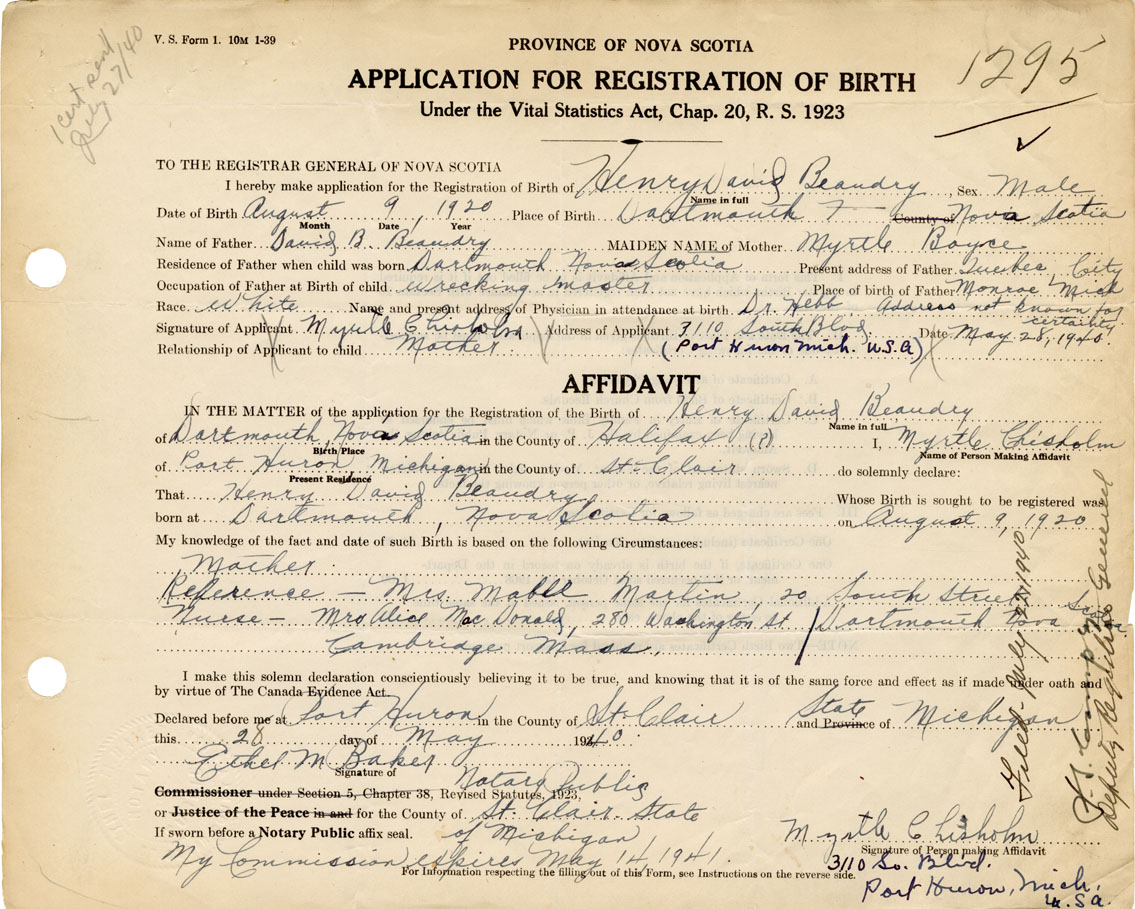 V. S. Form 1. 10M 1-39
1 cert sent
July 27/40
PROVINCE OF NOVA SCOTIA
1295
APPLICATION FOR REGISTRATION OF BIRTH
Under the Vital Statistics Act, Chap. 20, R. S. 1923
TO THE REGISTRAR GENERAL OF NOVA SCOTIA
I hereby make application for the Registration of Birth of Henry David Beaudry, Sex Male
Name in full
Date of Birth August 9, 1920 Place of Birth Dartmouth County of Nova Scotia
Month Date, Year
Name of Father David B. Beaudry MAIDEN NAME of Mother Myrtle Boyce
Residence of Father when child was born Dartmouth Nova Scotia Present address of Father Quebec, City
Occupation of Father at Birth of child wrecking master Place of birth of Father Monroe Mich
Race White Name and present address of Physician in attendance at birth Dr. Hebb, address not known for
certainty
Signature of Applicant Myrtle Chisholm Address of Applicant 3110 South Blvd. Date May 28, 1940.
Relationship of Applicant to child Mother (Port Huron Mich. U.S.A)
AFFIDAVIT
IN THE MATTER of the application for the Registration of the Birth of Henry David Beaudry
Name in full
of Dartmouth, Nova Scotia in the County of Halifax (?) I, Myrtle Chisholm
Birth Place Name of Person Making Affidavit
of Port Huron, Michigan in the County of St. Clair do solemnly declare:
Present Residence
That Henry David Beaudry Whose Birth is sought to be registered was
born at Dartmouth, Nova Scotia on August 9, 1920
My knowledge of the fact and date of such Birth is based on the following Circumstances:
Mother
Reference - Mrs. Mable Martin, 20 South Street
Nurse - Mrs Alice MacDonald, 280 Washington St. / Dartmouth Nova Sco
Cambridge Mass.
I make this solemn declaration conscientiously believing it to be true, and knowing that it is of the same force and effect as if made under oath and
by virtue of The Canada Evidence Act.
Declared before me at Port Huron in the County of St. Clair State and Province of Michigan
this 28 day of May 1940
Ethel M Baker
Signature of Notary Public
Commissioner under Section 5, Chapter 38, Revised Statutes, 1923,
or Justice of the Peace in and for the County of St. Clair State
If sworn before a Notary Public affix seal. of Michigan
My Commission expires May 14, 1941.
Myrtle Chisholm
Signature of Person making Affidavit
3110 So. Blvd.
Port Huron, Mich.
U.S.A.
For Information respecting the filling out of this Form, see Instructions on the reverse side.
Filed July 27 1940
Deputy Registrar General